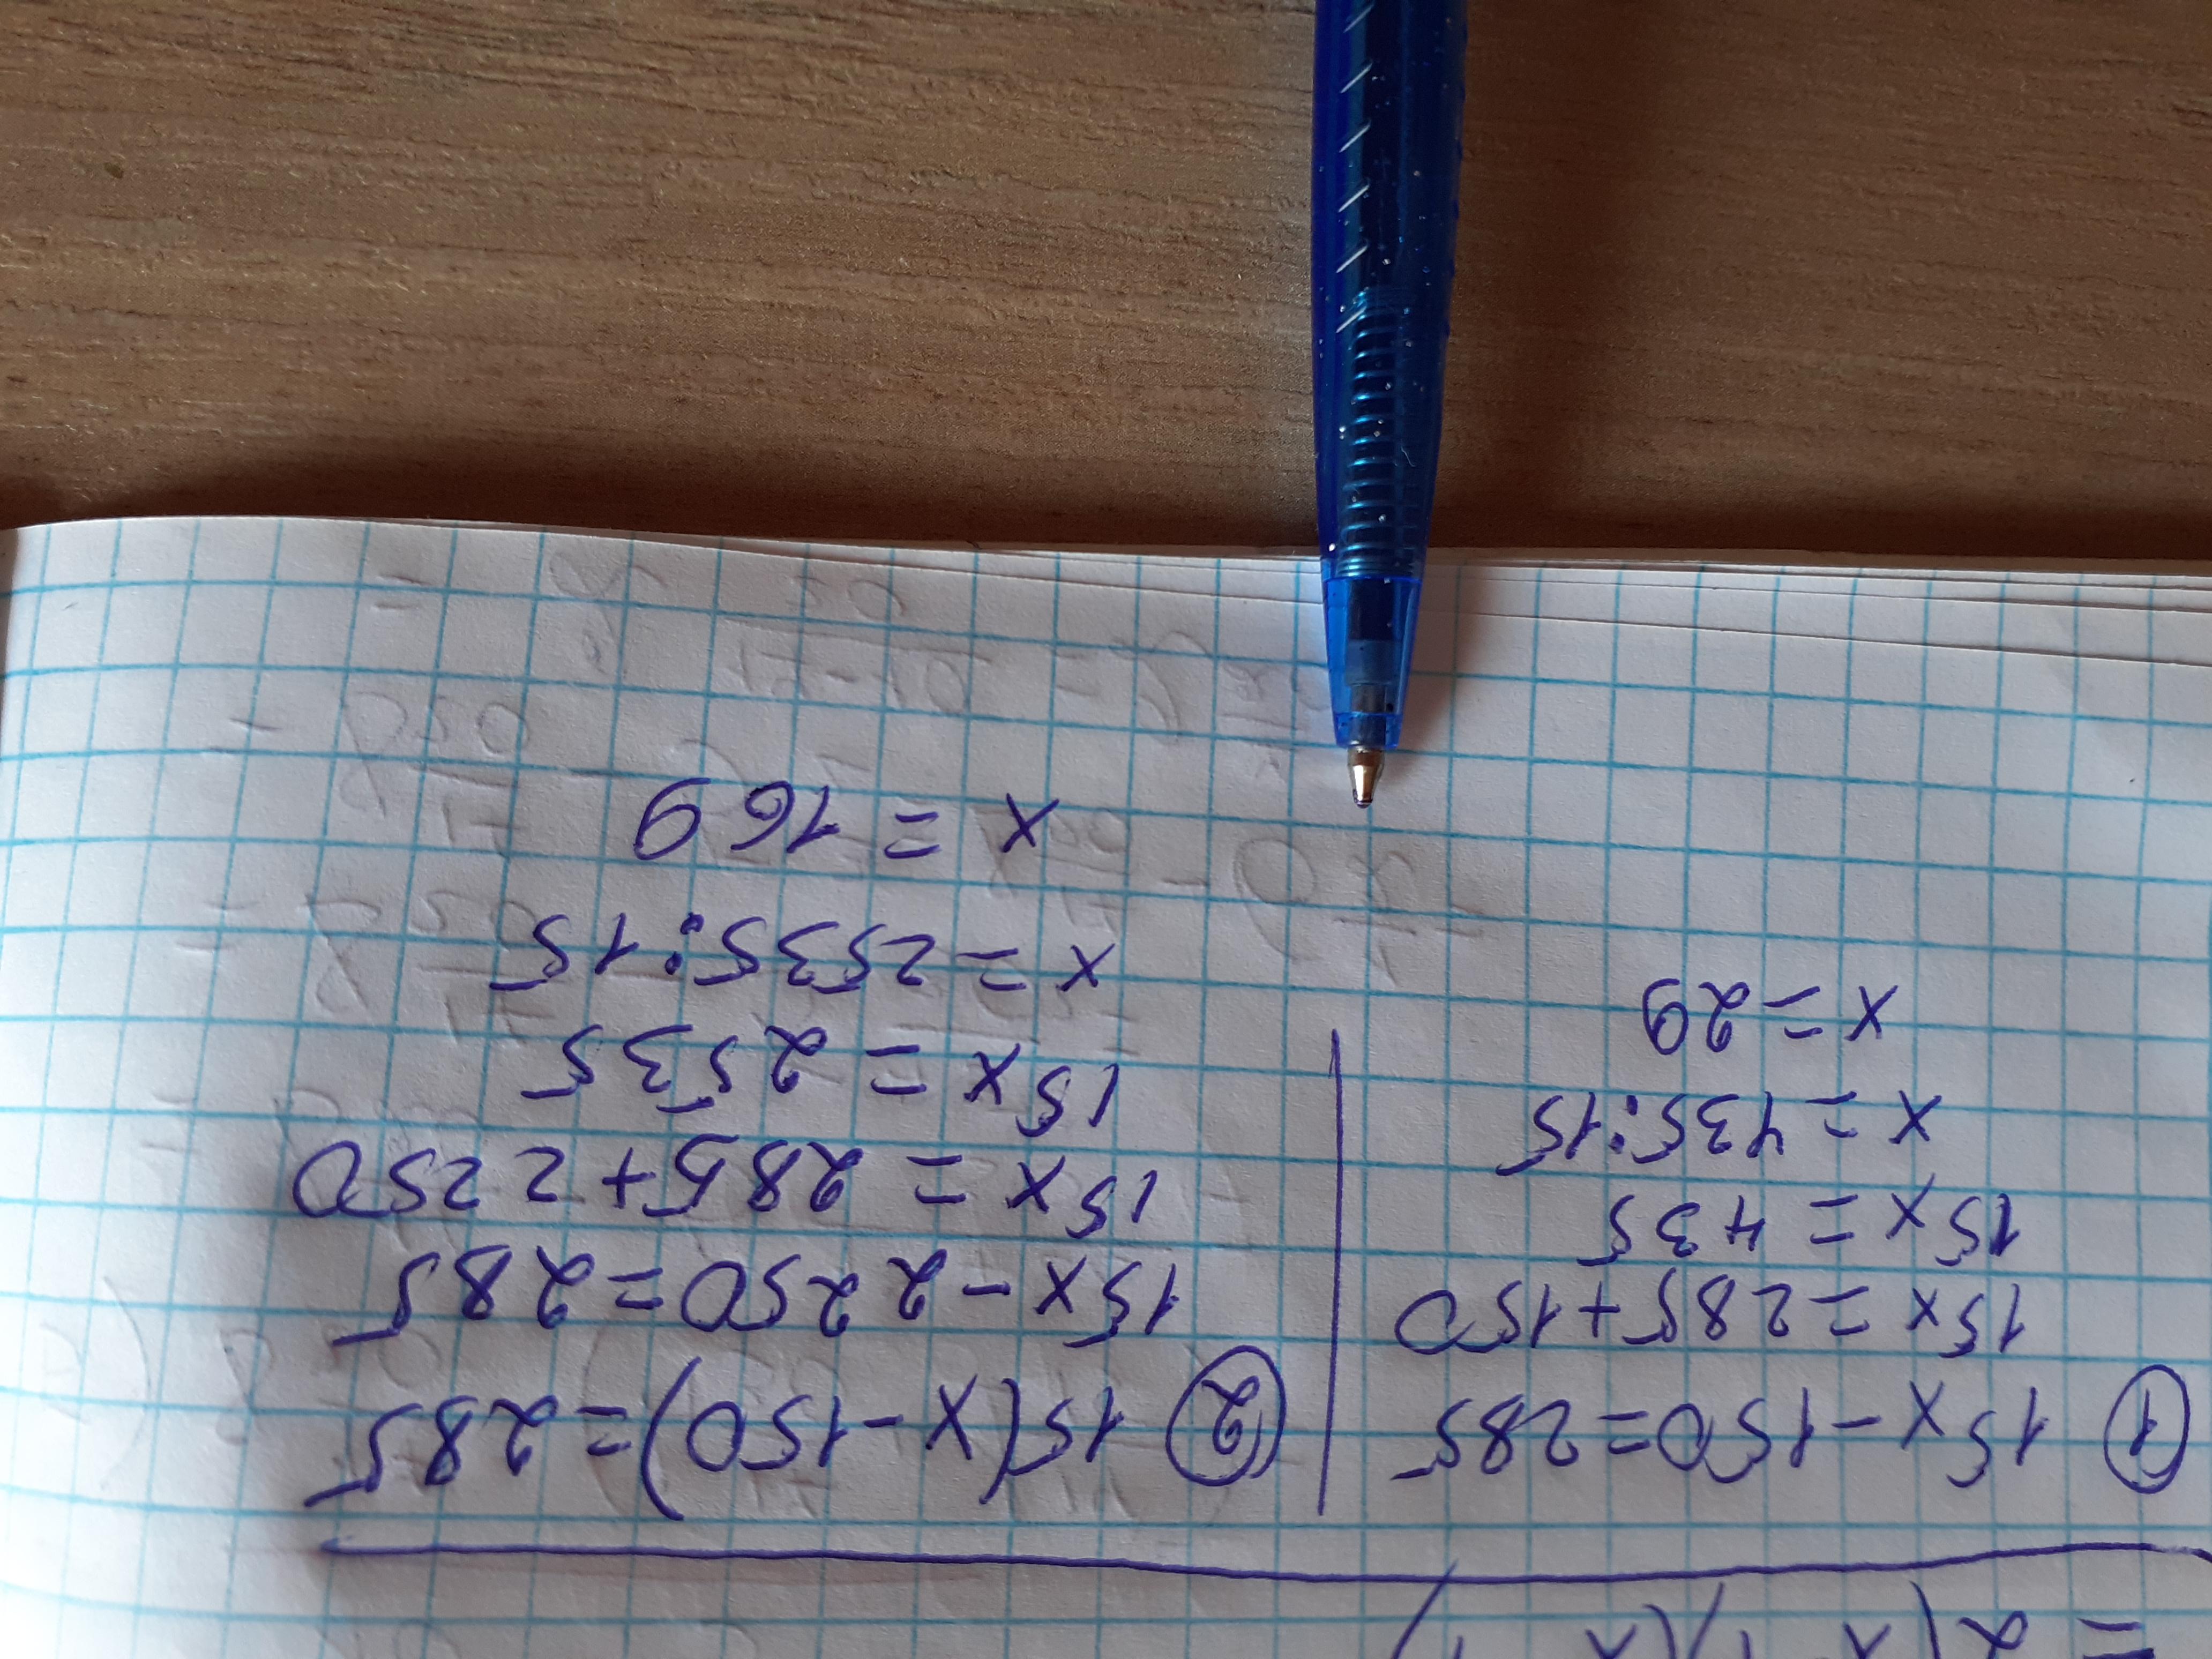 ① 15x-150=285
15x=285+150
15x=435
x=435:15
x=29
② 15(x-150)=285
15x-2250=285
15x=285+2250
15x=2535
x=2535:15
x=169